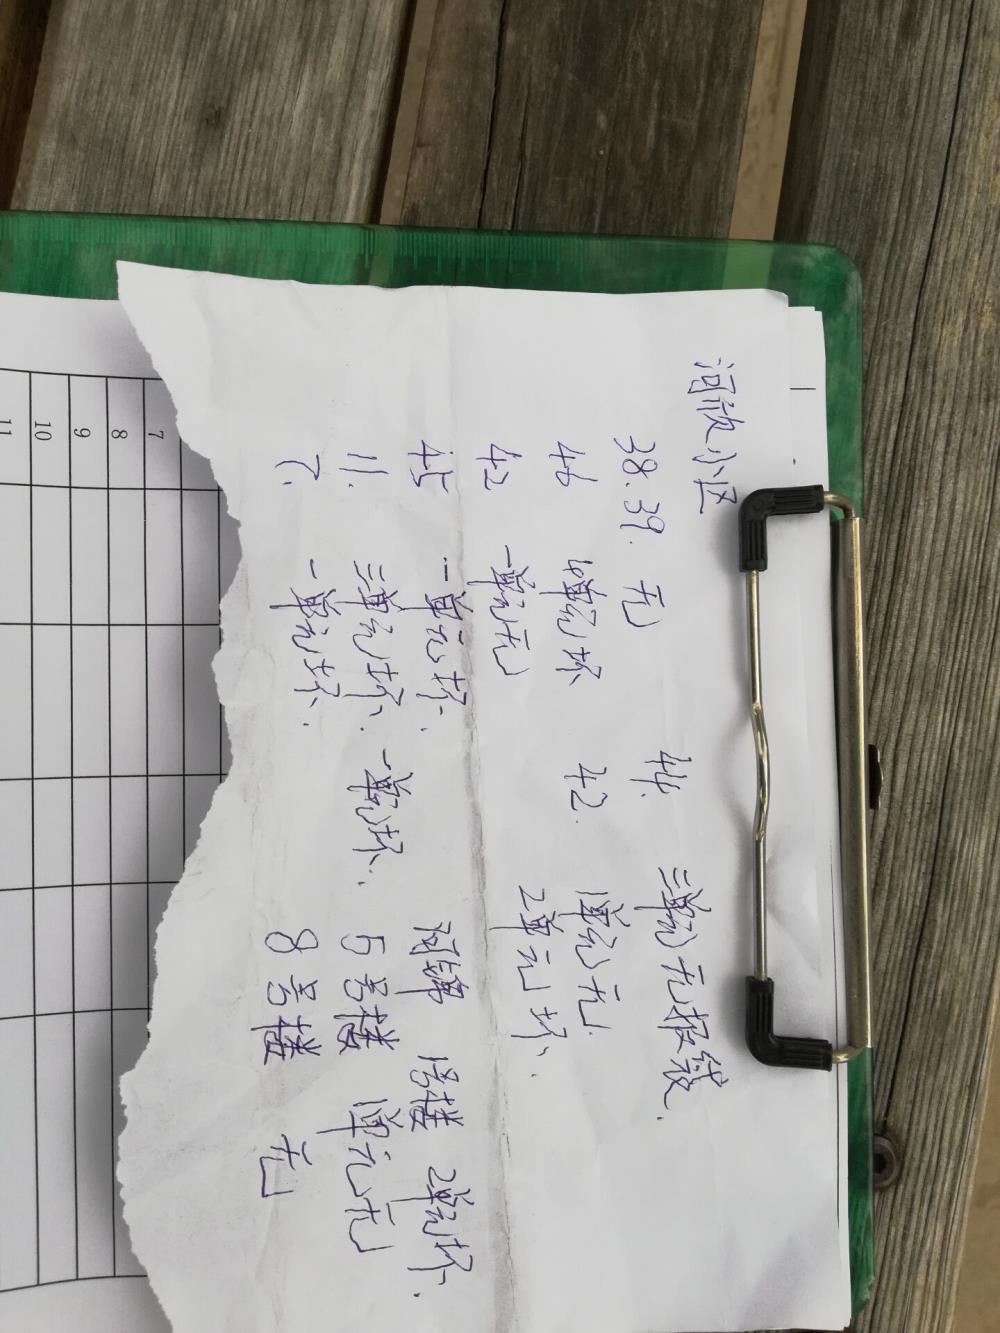 河欣小区
38.39. 无 44. 三单元无报箱.
46 4单元坏 42. 1单元无.
42 一单元无 2单元坏.
45 一单元坏. 河锦 1号楼 2单元坏.
11. 三单元坏. 一单元坏. 5号楼 1单元无
7. 一单元坏. 8号楼 无
7
8
9
10
11